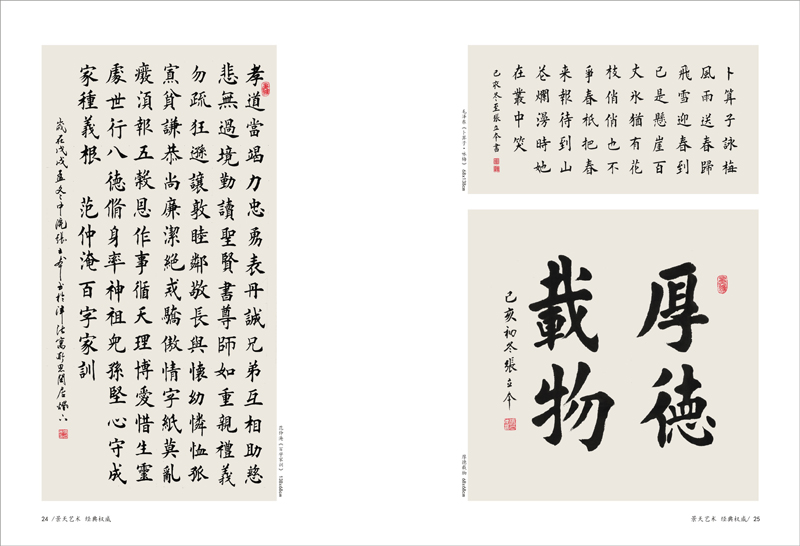 孝道當竭力忠勇表丹誠兄弟互相助慈
悲無過境勤讀聖賢書尊師如重親禮義
勿疏狂遜讓敦睦鄰敬長與懷幼憐恤孤
寡貧謙恭尚廉潔絕戒驕傲情字紙莫亂
廢須報五穀恩作事循天理博愛惜生靈
處世行八德脩身率神祖兒孫堅心守成
家種義根 范仲淹百字家訓
歲在戊戌孟冬中浣張立
范仲淹《百字家训》 138x68cm
24 /景天艺术 经典权威
卜算子詠梅
風雨送春歸
飛雪迎春到
已是懸崖百
丈氷猶有花
枝俏俏也不
爭春衹把春
来報待到山
花爛漫時她
在叢中笑
己亥冬至張立本書
毛泽东《卜算子·咏梅》 68x138cm
厚德
載物
己亥初冬張立本
厚德载物 68x68cm
景天艺术 经典权威/ 25